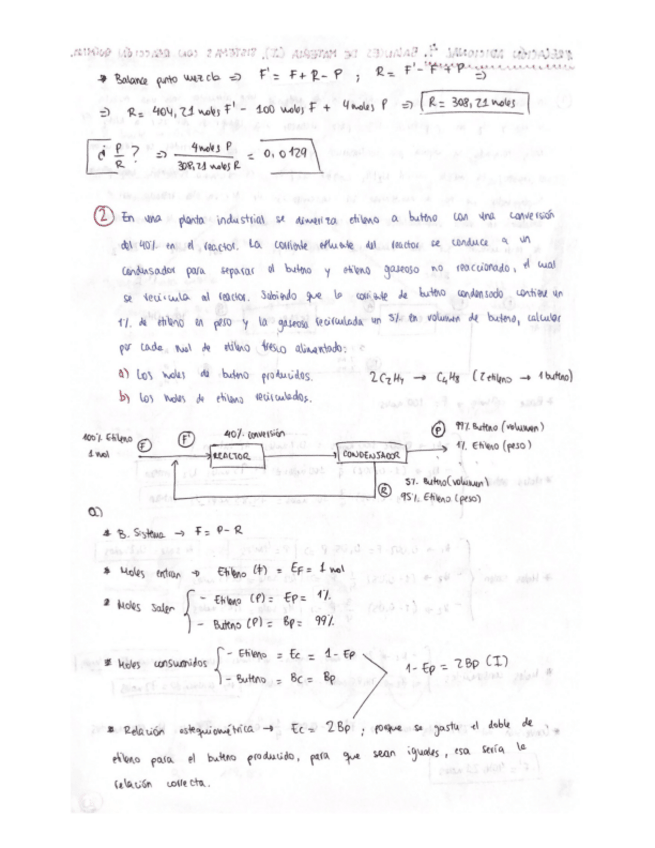 * Balance punto mezcla => F' = F + R - P ; R = F' - F + P =>
=> R = 404,21 moles F' - 100 moles F + 4 moles P => R = 308,21 moles
¿ P/R ? => 4 moles P / 308,21 moles R = 0,0129
2 En una planta industrial se dimeriza etileno a buteno con una conversión
del 40% en el reactor. La corriente efluente del reactor se conduce a un
condensador para separar el buteno y etileno gaseoso no reaccionado, el cual
se recircula al reactor. Sabiendo que la corriente de buteno condensado contiene un
1% de etileno en peso y la gaseosa recirculada un 5% en volumen de buteno, calcular
por cada mol de etileno fresco alimentado:
a) Los moles de buteno producidos. 2C2H4 → C4H8 (2 etileno → 1 buteno)
b) Los moles de etileno recirculados.
100% Etileno
1 mol
F
F'
40% conversión
REACTOR
CONDENSADOR
P 99% Buteno (volumen)
1% Etileno (peso)
R 5% Buteno (volumen)
95% Etileno (peso)
a)
* B. Sistema → F = P - R
* Moles entran → Etileno (F) = EF = 1 mol
* Moles salen { - Etileno (P) = EP = 1%
- Buteno (P) = BP = 99%
* Moles consumidos { - Etileno = EC = 1 - EP
- Buteno = BC = BP
1 - EP = 2BP (I)
* Relación estequiométrica → EC = 2BP ; porque se gasta el doble de
etileno para el buteno producido, para que sean iguales, esa sería la
relación correcta.